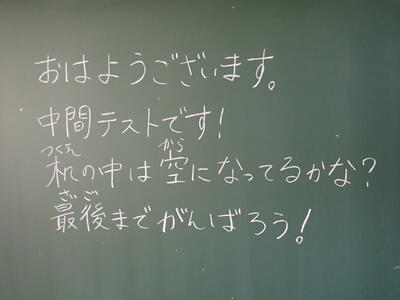 おはようございます。
中間テストです!
つくえ から
机の中は空になってるかな?
さいご
最後までがんばろう!